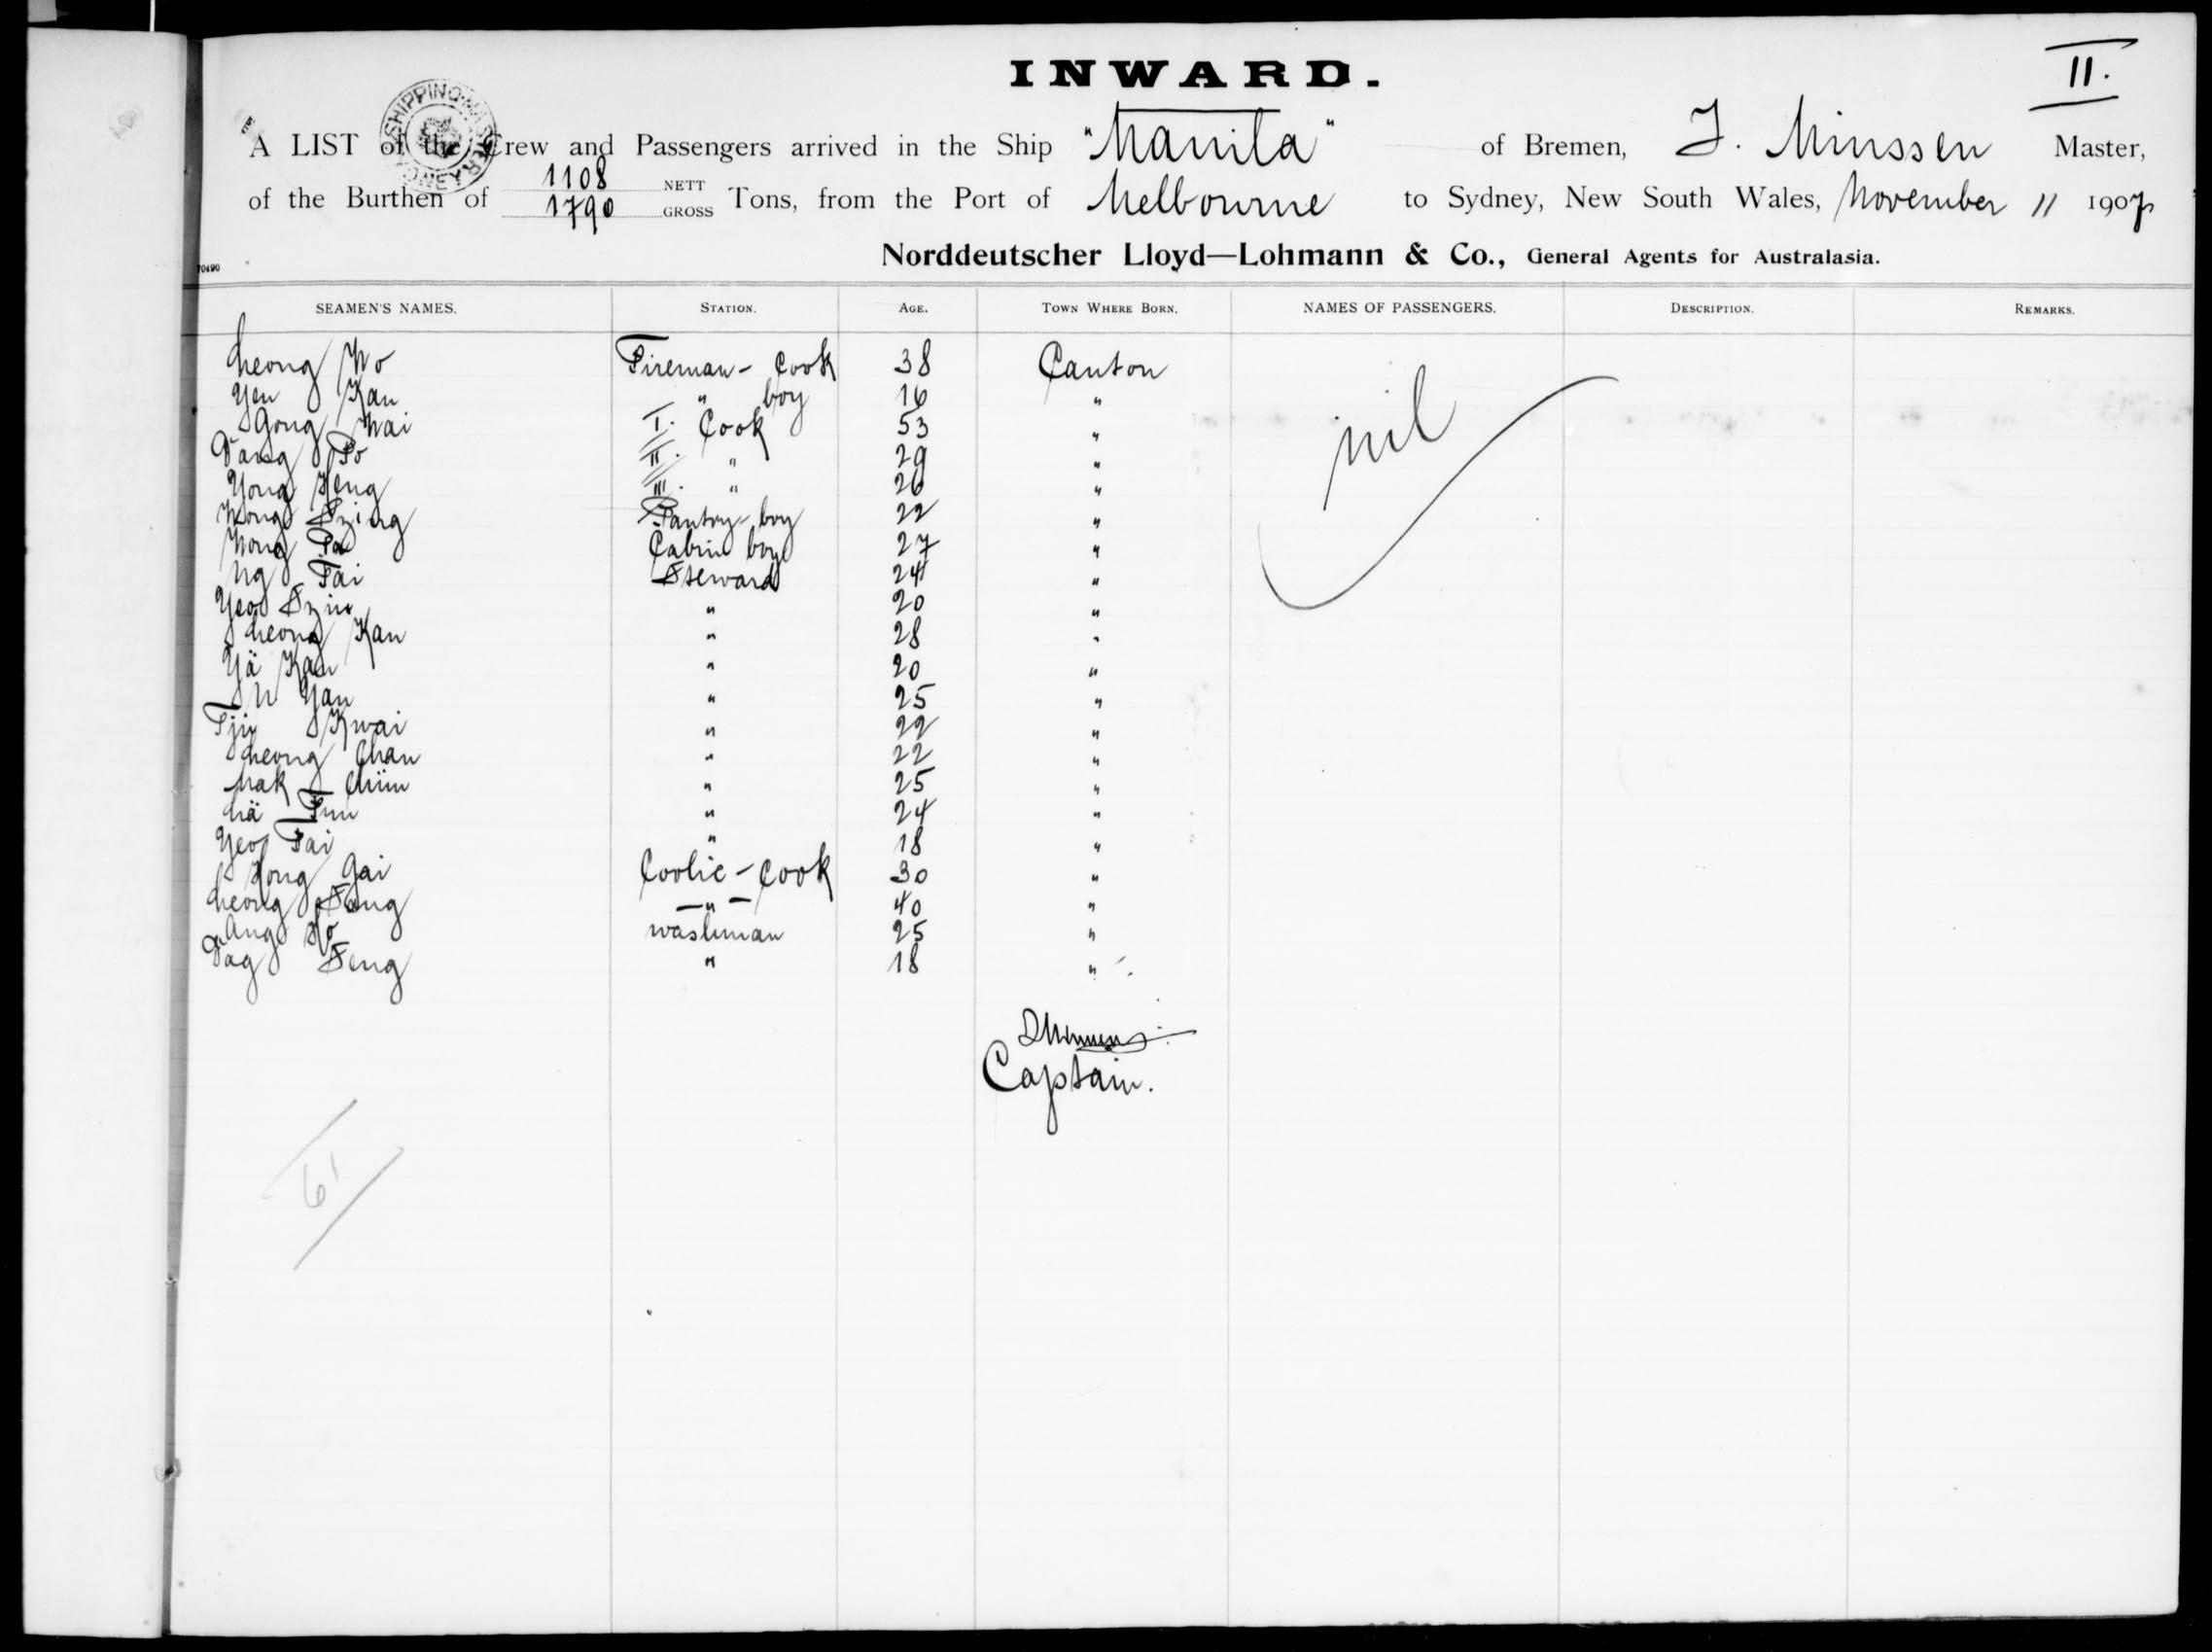 INWARD.
II.
A LIST of the Crew and Passengers arrived in the Ship "Manila" of Bremen, J. Minssen Master,
of the Burthen of 1108 NETT 1790 GROSS Tons, from the Port of Melbourne to Sydney, New South Wales, November 11 1907
Norddeutscher Lloyd—Lohmann & Co., General Agents for Australasia.
70490
SEAMEN'S NAMES. STATION. AGE. TOWN WHERE BORN. NAMES OF PASSENGERS. DESCRIPTION. REMARKS.
Cheong Wo Fireman - Cook 38 Canton nil
Yen Kan " boy 16 "
Gong Mai I. Cook 53 "
Po II. " 29 "
Yong Heng III. " 26 "
Pantry-boy 22 "
Cabin boy 27 "
Ng Tai Steward 24 "
Yeo " 20 "
Cheong Kan " 28 "
Yä Kan " 20 "
U Yan " 25 "
Kwai " 22 "
Cheong Chan " 22 "
Mak " 25 "
" 24 "
Yeo Tai " 18 "
Gai Coolie - Cook 30 "
Cheong -"- 40 "
washman 25 "
Seng " 18 "
Captain.
61